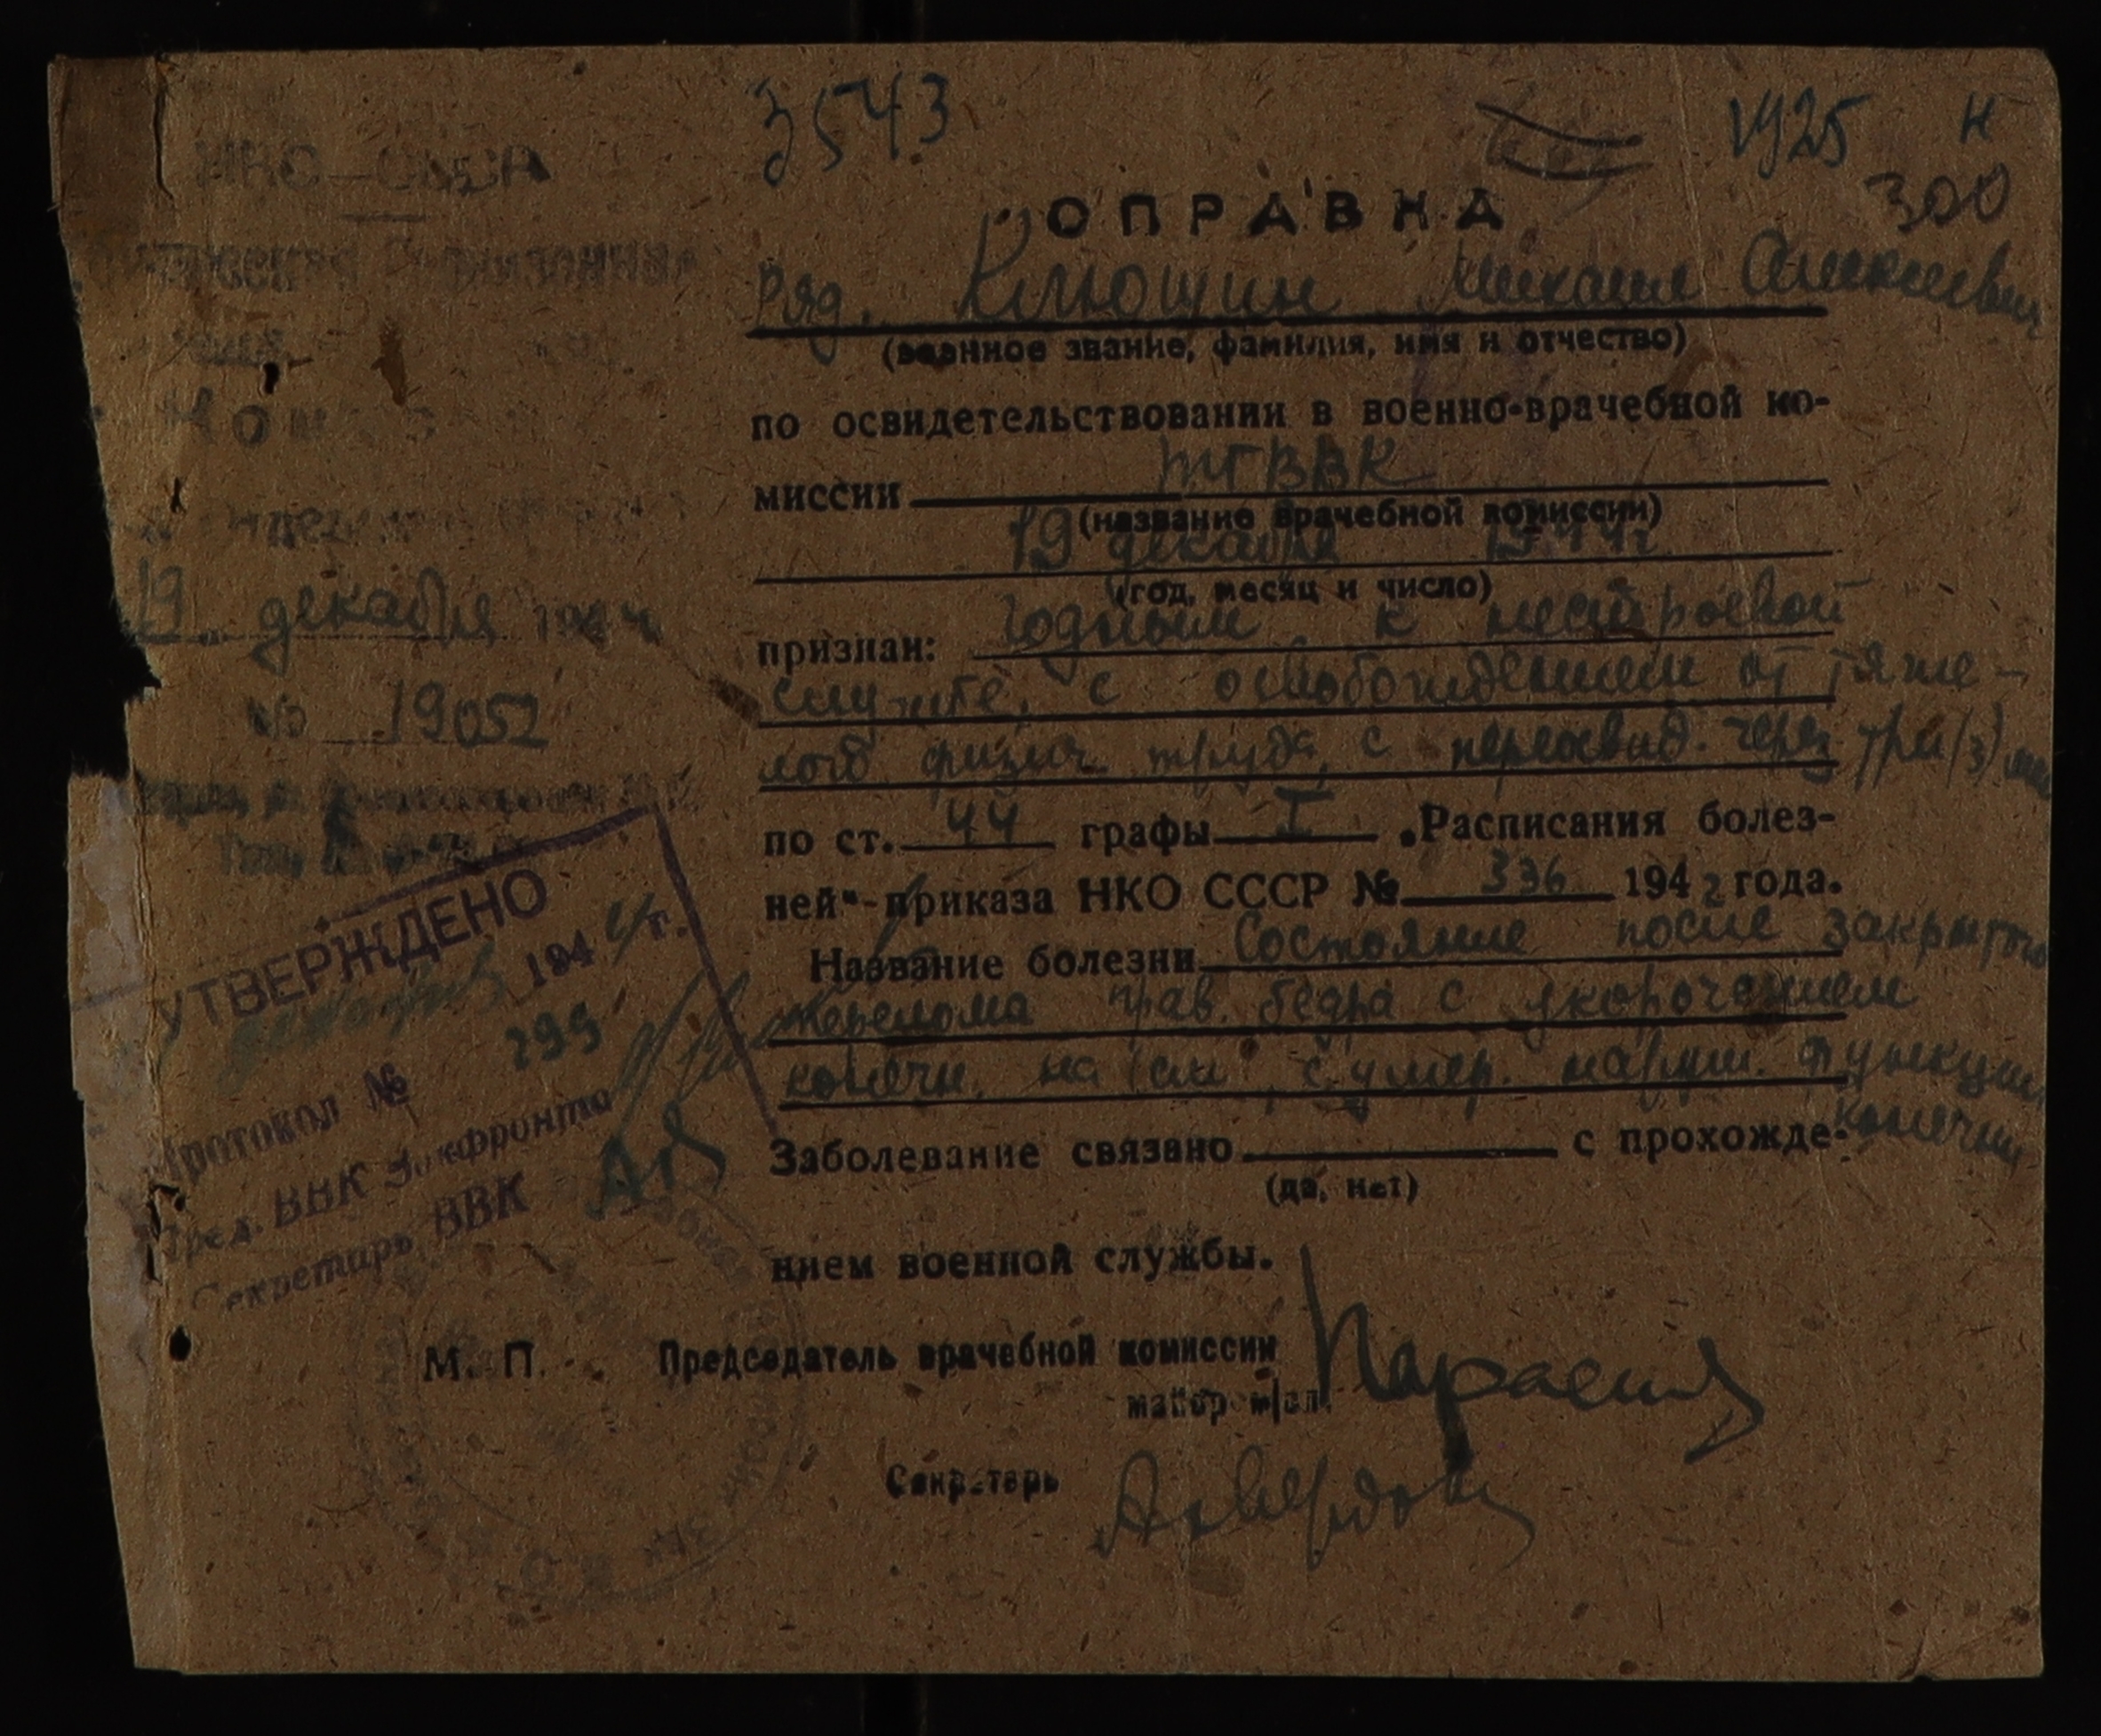 3543
1925 Н
300
НКО—СССР
СПРАВКА
Ряд. Клюшин Михаил Алексеевич
(военное звание, фамилия, имя и отчество)
по освидетельствовании в военно-врачебной ко-
миссии ТГВВК
(название врачебной комиссии)
19 декабря 1944 г
(год, месяц и число)
признан: годным к нестроевой
службе, с освобождением от тяже-
лого физич. труда, с переосвид. через три (3) мес
по ст. 44 графы I „Расписания болез-
ней“ приказа НКО СССР № 336 1942 года.
Название болезни Состояние после закрытого
перелома прав. бедра с укорочением
конечн. на 1 см с умер. наруш. функции
конечн.
Заболевание связано с прохожде-
(да, нет)
нием военной службы.
М. П. Председатель врачебной комиссии
майор м/сл.
Секретарь
19 декабря 1944
№ 19052
УТВЕРЖДЕНО
декабря 1944 г.
Протокол № 299
Пред. ВВК Закфронта
Секретарь ВВК